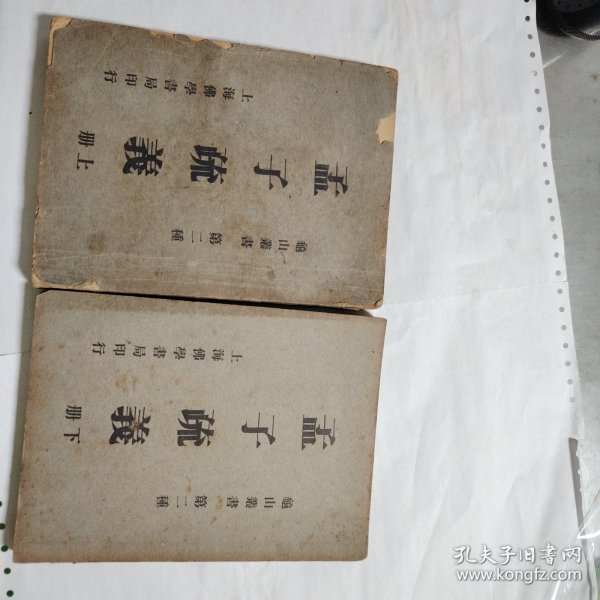 龜山叢書第二種
孟子疏義
上册
上海佛學書局印行
龜山叢書第二種
孟子疏義
下册
上海佛學書局印行
孔夫子旧书网
www.kongfz.com